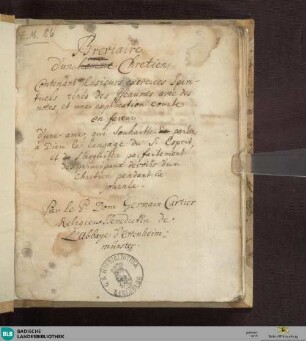 E. M. 26
Breviaire
d'un Chretien
Contenant Plusieurs exercices Spiri-
tuels tirés des Pseaumes avec des
notes, et une explication courte
en faveur
D'une ame qui souhaite parler
à Dieu le langage du St Esprit,
et de s'acquitter parfaitement
des principaux devoirs d'un
chretien pendant la
Par le P. Dom Germain Cartier
Religieux Benedictin de
L'abbaye d'Ettenheim-
münster.
BLB
BADISCHE
LANDESBIBLIOTHEK